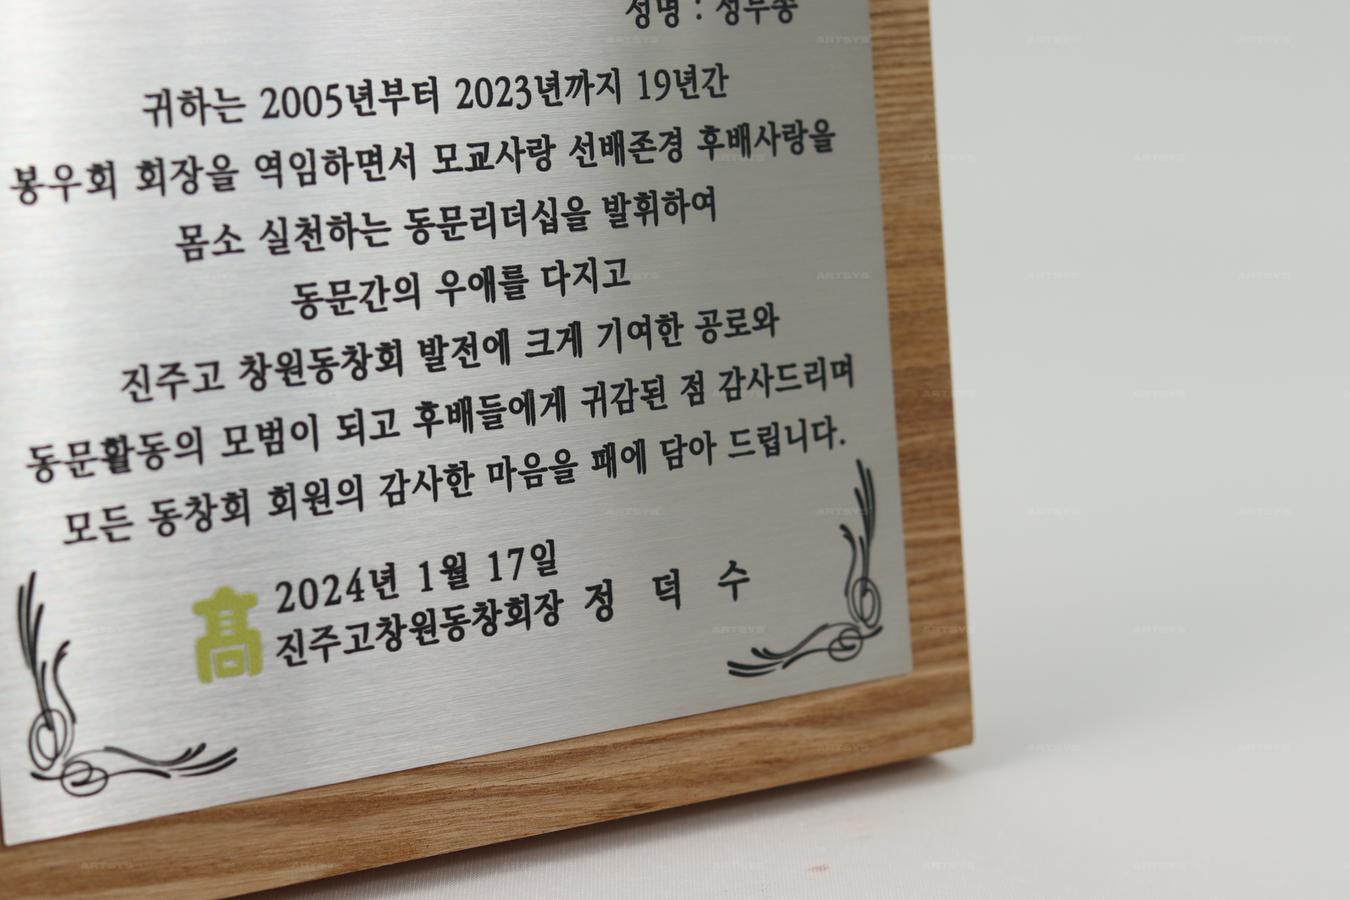 성명 :
귀하는 2005년부터 2023년까지 19년간
봉우회 회장을 역임하면서 모교사랑 선배존경 후배사랑을
몸소 실천하는 동문리더십을 발휘하여
동문간의 우애를 다지고
진주고 창원동창회 발전에 크게 기여한 공로와
동문활동의 모범이 되고 후배들에게 귀감된 점 감사드리며
모든 동창회 회원의 감사한 마음을 패에 담아 드립니다.
高
2024년 1월 17일
진주고창원동창회장 정 덕 수
ARTSYS